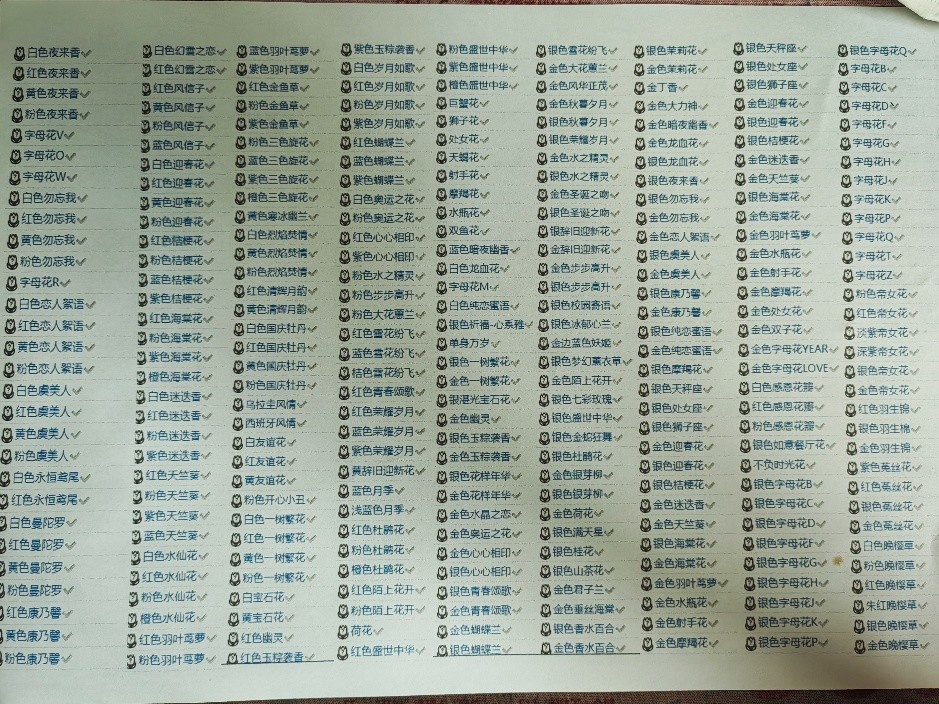 白色夜来香
红色夜来香
黄色夜来香
粉色夜来香
字母花V
字母花O
字母花W
白色勿忘我
红色勿忘我
黄色勿忘我
粉色勿忘我
字母花R
白色恋人絮语
红色恋人絮语
黄色恋人絮语
粉色恋人絮语
白色虞美人
红色虞美人
黄色虞美人
粉色虞美人
白色永恒鸢尾
红色永恒鸢尾
白色曼陀罗
红色曼陀罗
黄色曼陀罗
粉色曼陀罗
红色康乃馨
黄色康乃馨
粉色康乃馨
白色幻雪之恋
红色幻雪之恋
红色风信子
黄色风信子
粉色风信子
蓝色风信子
白色迎春花
红色迎春花
黄色迎春花
粉色迎春花
红色桔梗花
粉色桔梗花
蓝色桔梗花
紫色桔梗花
红色海棠花
粉色海棠花
紫色海棠花
橙色海棠花
白色迷迭香
红色迷迭香
粉色迷迭香
紫色迷迭香
红色天竺葵
粉色天竺葵
紫色天竺葵
蓝色天竺葵
白色水仙花
红色水仙花
粉色水仙花
橙色水仙花
红色羽叶茑萝
粉色羽叶茑萝
蓝色羽叶茑萝
紫色羽叶茑萝
红色金鱼草
粉色金鱼草
紫色金鱼草
粉色三色旋花
蓝色三色旋花
紫色三色旋花
橙色三色旋花
黄色寒冰幽兰
白色烈焰焚情
黄色烈焰焚情
粉色烈焰焚情
红色清辉月韵
黄色清辉月韵
白色国庆牡丹
红色国庆牡丹
黄色国庆牡丹
粉色国庆牡丹
乌拉圭风情
西班牙风情
白友谊花
红友谊花
黄友谊花
粉色开心小丑
白色一树繁花
红色一树繁花
黄色一树繁花
粉色一树繁花
白宝石花
黄宝石花
红色幽灵
红色玉粽袭香
紫色玉粽袭香
白色岁月如歌
红色岁月如歌
粉色岁月如歌
紫色岁月如歌
红色蝴蝶兰
蓝色蝴蝶兰
紫色蝴蝶兰
白色奥运之花
粉色奥运之花
红色心心相印
紫色心心相印
粉色水之精灵
粉色步步高升
粉色大花蕙兰
红色雪花纷飞
蓝色雪花纷飞
桔色雪花纷飞
红色青春颂歌
红色荣耀岁月
蓝色荣耀岁月
紫色荣耀岁月
黄辞旧迎新花
蓝色月季
浅蓝色月季
红色杜鹃花
粉色杜鹃花
橙色杜鹃花
红色陌上花开
粉色陌上花开
荷花
红色盛世中华
粉色盛世中华
紫色盛世中华
橙色盛世中华
巨蟹花
狮子花
处女花
天蝎花
射手花
摩羯花
水瓶花
双鱼花
蓝色暗夜幽香
白色龙血花
字母花M
白色纯恋蜜语
银色祈福-心系雅
单身万岁
银色一树繁花
金色一树繁花
银湛光宝石花
金色幽灵
银色玉粽袭香
金色玉粽袭香
银色花样年华
金色花样年华
金色水晶之恋
金色奥运之花
金色心心相印
银色心心相印
银色青春颂歌
金色青春颂歌
金色蝴蝶兰
银色蝴蝶兰
银色雪花纷飞
金色大花蕙兰
金色风华正茂
金色秋暮夕月
银色秋暮夕月
银色荣耀岁月
金色水之精灵
银色水之精灵
金色圣诞之吻
银色圣诞之吻
银辞旧迎新花
金辞旧迎新花
金色步步高升
银色步步高升
银色校园寄语
银色冰郁心兰
金边蓝色妖姬
银色梦幻薰衣草
金色陌上花开
银色七彩玫瑰
银色盛世中华
银色金蛇狂舞
银色杜鹃花
金色银芽柳
银色银芽柳
金色荷花
银色满天星
银色桂花
银色山茶花
金色君子兰
金色垂丝海棠
银色香水百合
金色香水百合
银色茉莉花
金色茉莉花
金丁香
金色大力神
金色暗夜幽香
金色龙血花
银色龙血花
银色夜来香
银色勿忘我
金色勿忘我
金色恋人絮语
银色虞美人
金色虞美人
银色康乃馨
金色康乃馨
银色纯恋蜜语
金色纯恋蜜语
银色摩羯花
银色天秤座
银色处女座
银色狮子座
金色迎春花
银色迎春花
银色桔梗花
金色迷迭香
金色天竺葵
银色海棠花
金色海棠花
金色羽叶茑萝
金色水瓶花
金色射手花
金色摩羯花
银色天秤座
银色处女座
银色狮子座
金色迎春花
银色迎春花
银色桔梗花
金色迷迭香
金色天竺葵
银色海棠花
金色海棠花
金色羽叶茑萝
金色水瓶花
金色射手花
金色摩羯花
金色处女花
金色双子花
金色字母花YEAR
金色字母花LOVE
白色感恩花瓣
红色感恩花瓣
粉色感恩花瓣
银色如意餐厅花
不负时光花
银色字母花B
银色字母花C
银色字母花D
银色字母花F
银色字母花G
银色字母花H
银色字母花J
银色字母花K
银色字母花P
银色字母花Q
字母花B
字母花C
字母花D
字母花F
字母花G
字母花H
字母花J
字母花K
字母花P
字母花Q
字母花T
字母花Z
粉色帝女花
红色帝女花
淡紫帝女花
深紫帝女花
银色帝女花
金色帝女花
红色羽生锦
银色羽生棉
金色羽生锦
紫色菟丝花
红色菟丝花
银色菟丝花
金色菟丝花
白色晚樱草
粉色晚樱草
红色晚樱草
朱红晚樱草
银色晚樱草
金色晚樱草